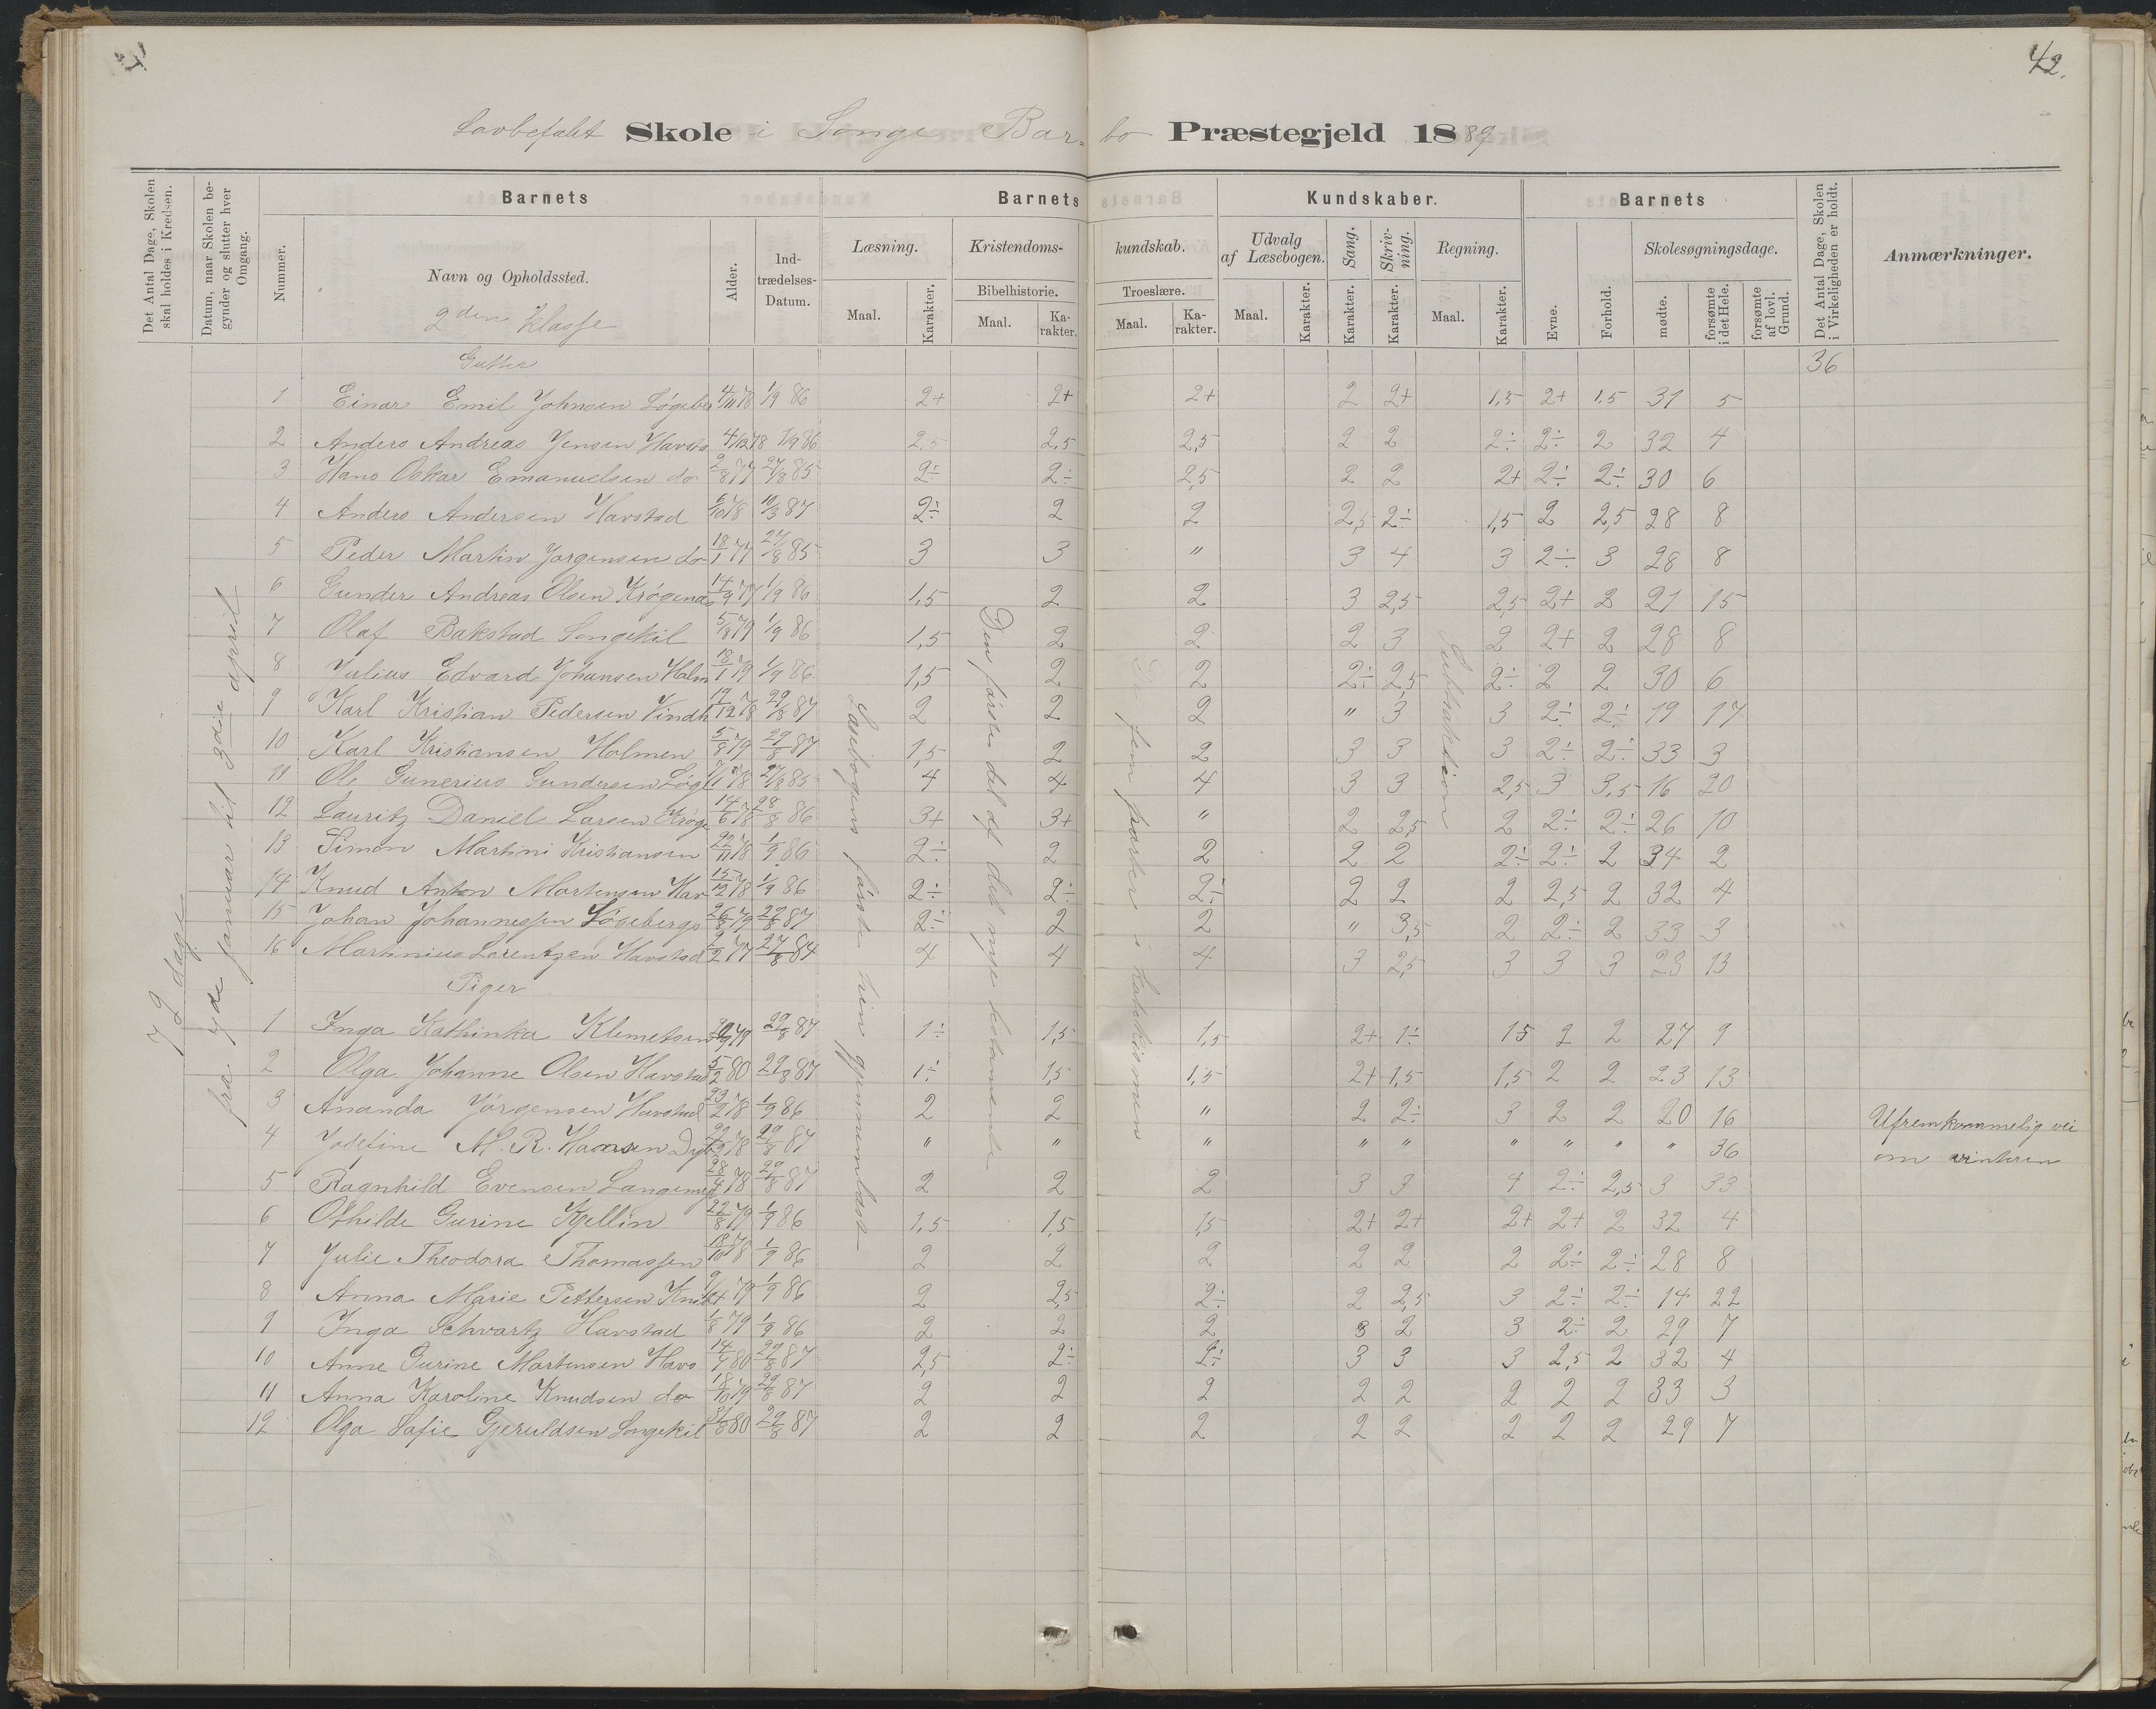 42.
Lovbefalet Skole i Songe Barbo Præstegjeld 1889
Det Antal Dage, Skolen skal holdes i Kredsen.
Datum, naar Skolen begynder og slutter hver Omgang.
Barnets
Nummer.
Navn og Opholdssted.
Alder.
Indtrædelses-Datum.
Barnets
Læsning.
Maal.
Karakter.
Kristendoms-
kundskab.
Bibelhistorie.
Maal.
Karakter.
Troeslære.
Maal.
Karakter.
Kundskaber.
Udvalg af Læsebogen.
Maal.
Karakter.
Sang.
Karakter.
Skrivning.
Karakter.
Regning.
Maal.
Karakter.
Barnets
Evne.
Forhold.
Skolesøgningsdage.
mødte.
forsømte i det Hele.
forsømte af lovl. Grund.
Det Antal Dage, Skolen i Virkeligheden er holdt.
Anmærkninger.
2den Klasse
Gutter
36
1 Einar Emil Johnsen 4/11 78 1/9 86 2+ 2+ 2+ 2 2+ 1,5 2+ 1,5 31 5
2 Anders Andreas Jensen Havsta 4/12 78 1/9 86 2,5 2,5 2,5 2 2 2÷ 2÷ 2 32 4
3 Hans Oskar Emanuelsen do 2/8 77 27/8 85 2÷ 2÷ 2,5 2 2 2+ 2÷ 2÷ 30 6
4 Anders Andersen Havstad 6/10 78 10/3 87 2÷ 2 2 2,5 2÷ 1,5 2 2,5 28 8
5 Peder Martin Jorgensen do 18/1 77 27/8 85 3 3 " 3 4 3 2÷ 3 28 8
6 Gunder Andreas Olsen Krøgenæs 14/9 79 1/9 86 1,5 2 2 3 2,5 2,5 2+ 2 21 15
7 Olaf Bakstad Songekil 5/8 79 1/9 86 1,5 2 2 2 3 2 2+ 2 28 8
8 Julius Edvard Johansen Holm 18/1 79 1/9 86 1,5 2 2 2÷ 2,5 2÷ 2 2 30 6
9 Karl Kristian Pedersen Vindh 19/12 78 29/8 87 2 2 2 " 3 3 2÷ 2÷ 19 17
10 Karl Kristiansen Holmen 5/8 79 29/8 87 1,5 2 2 3 3 3 2÷ 2÷ 33 3
11 Ole Gunerius Gundersen Løg 78 27/8 85 4 4 4 3 3 2,5 3 3,5 16 20
12 Lauritz Daniel Larsen Krøge 14/6 78 28/8 86 3+ 3+ " 2 2,5 2 2÷ 2÷ 26 10
13 Simon Martini Kristiansen 22/11 78 1/9 86 2÷ 2 2 2 2 2÷ 2÷ 2 34 2
14 Knud Anton Martensen Hav 15/12 78 1/9 86 2÷ 2÷ 2÷ 2 2 2 2,5 2 32 4
15 Johan Johannessen Løgeberge 26/8 79 29/8 87 2÷ 2 2 " 3,5 2 2÷ 2 33 3
16 Martinius Lorentzen Havstad 9/2 77 27/8 84 4 4 4 3 2,5 3 3 3 23 13
Piger
1 Inga Kathinka Klemetsen 79 29/8 87 1÷ 1,5 1,5 2+ 1÷ 15 2 2 27 9
2 Olga Johanne Olsen Havstad 5/2 80 29/8 87 1÷ 1,5 1,5 2+ 1,5 1,5 2 2 23 13
3 Ananda Jørgensen Havstad 23/2 78 1/9 86 2 2 " 2 2÷ 3 2 2 20 16 Ufremkommelig vei
4 Josefine M. R. Hansen 78 29/8 87 " " " " " " " " " 36 om vinteren
5 Ragnhild Evensen Langemyr 28/4 78 29/8 87 2 2 2 3 3 4 2÷ 2,5 3 33
6 Othilde Gurine Kjellin 22/8 79 1/9 86 1,5 1,5 15 2+ 2+ 2+ 2+ 2 32 4
7 Julie Theodora Thomassen 18/10 78 1/9 86 2 2 2 2 2 2 2÷ 2÷ 28 8
8 Anna Marie Pettersen 9/4 79 1/9 86 2 2,5 2÷ 2 2,5 3 2÷ 2÷ 14 22
9 Inga Schvartz Havstad 1/8 79 1/9 86 2 2 2 3 2 3 2÷ 2 29 7
10 Anne Gurine Martensen Havs 14/7 80 29/8 87 2,5 2÷ 2÷ 3 3 3 2,5 2 32 4
11 Anna Karoline Knudsen do 18/10 79 29/8 87 2 2 2 2 2 2 2 2 33 3
12 Olga Sofie Gjeruldsen Songekil 80 29/8 87 2 2 2 2 2 2 2 2 29 7
72 dage
fra 7de januar til 3die april
Læsebogens første trin gjennemlæst
Den første del af det nye testamente
De fem parter i katekismen
Subtraktion